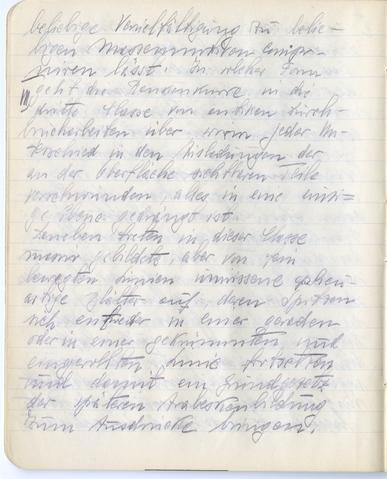 beliebige Vervielfältigung zu belie-
bigen Massenmustern kompo-
nieren lässt. In solcher Form
geht die Rankenkurve in die
dritte Classe von antiken Durch-
brucharbeiten über, worin jeder Un-
terschied in den Ausladungen der
an der Oberfläche sichtbaren Teile
verschwinden, alles in eine einzi-
ge Ebene gedrängt ist.
Daneben treten in dieser Classe
immer gebildet, aber von
bewegten Linien umrissene
artige Blätter auf, deren Spitzen
sich entweder in einer geraden
oder in einer gekrümmten, und
eingerollten Linie fortsetzen
und damit ein Grundgesetz
der späteren Arabeskenbildung
zum Ausdrucke bringen.